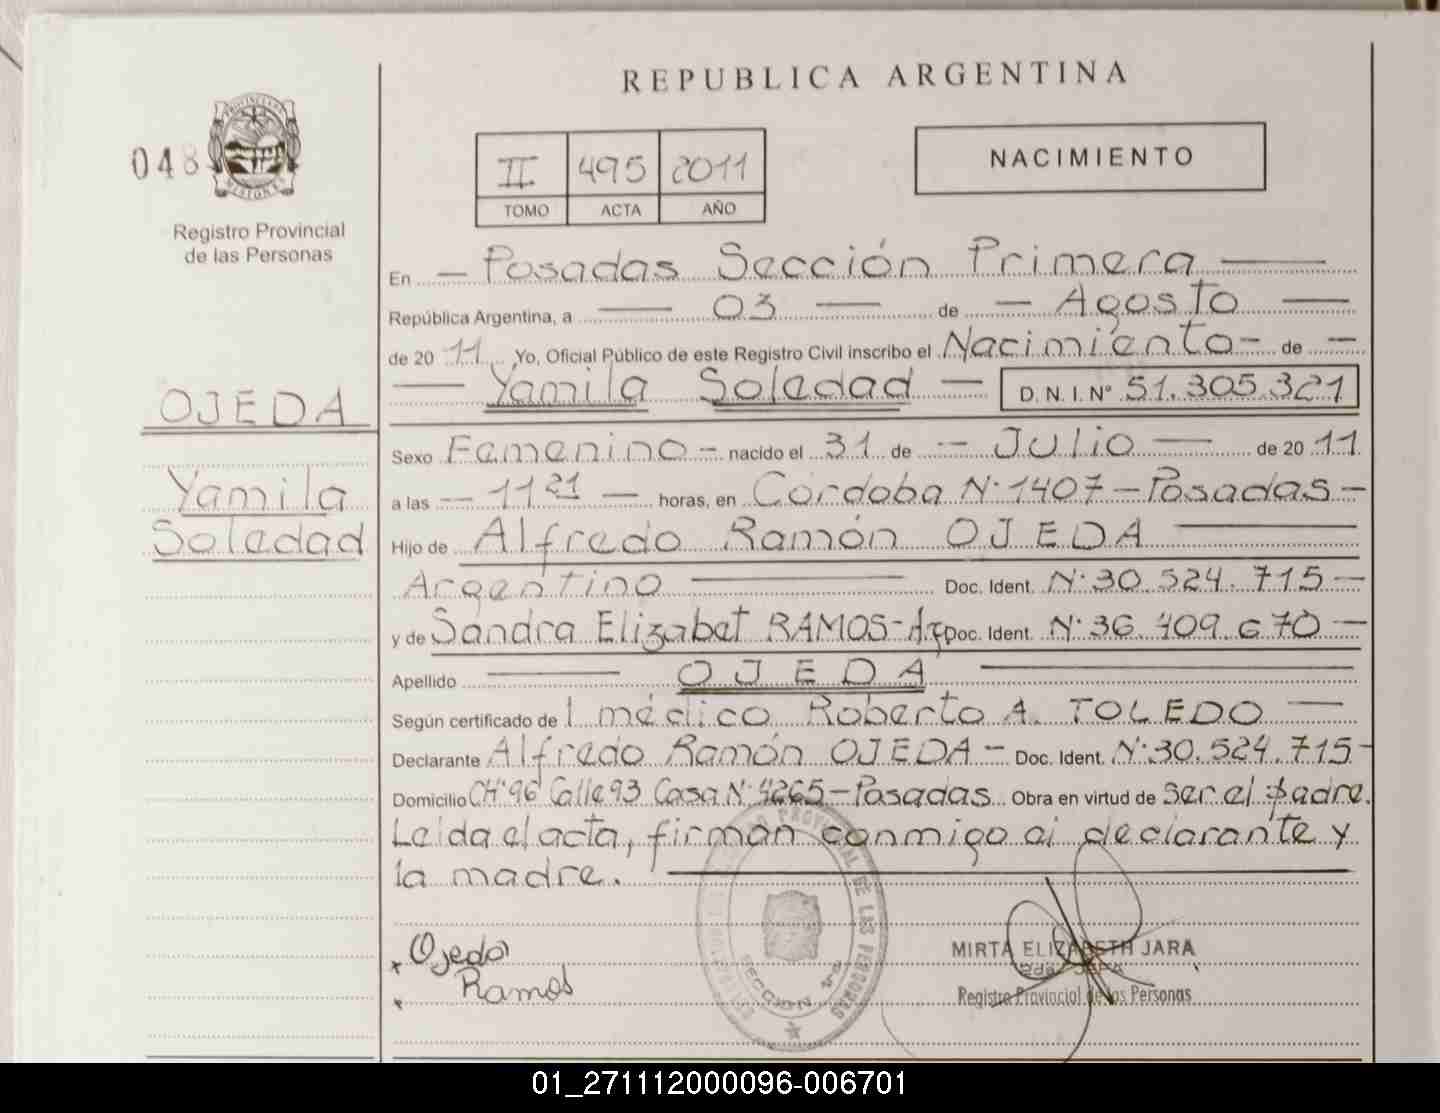 REPUBLICA ARGENTINA
048
PROVINCIA
MISIONES
Registro Provincial
de las Personas
II 495 2011
TOMO ACTA AÑO
NACIMIENTO
En — Posadas Sección Primera —
República Argentina, a — 03 — de — Agosto —
de 2011 Yo, Oficial Público de este Registro Civil inscribo el Nacimiento - de —
— Yamila Soledad — D.N.I.Nº 51.305.321
OJEDA
Yamila
Soledad
Sexo Femenino - nacido el 31 de — JULIO — de 2011
a las — 11 21 — horas, en Córdoba Nº 1407 - Posadas -
Hijo de Alfredo Ramón OJEDA —
Argentino — Doc. Ident. Nº 30.524.715 —
y de Sandra Elizabet RAMOS - Arg Doc. Ident. Nº 36.409.670 —
Apellido — OJEDA —
Según certificado del médico Roberto A. TOLEDO —
Declarante Alfredo Ramón OJEDA - Doc. Ident. Nº 30.524.715 -
Domicilio CHº 96 Calle 93 Casa Nº 4265 - Posadas Obra en virtud de Ser el padre.
Leida el acta, firman conmigo el declarante y
la madre.
x Ojeda
x Ramos
SECCION 1ra
MIRTA ELIZABETH JARA
2da JEFA
Registro Provincial de las Personas
01_271112000096-006701